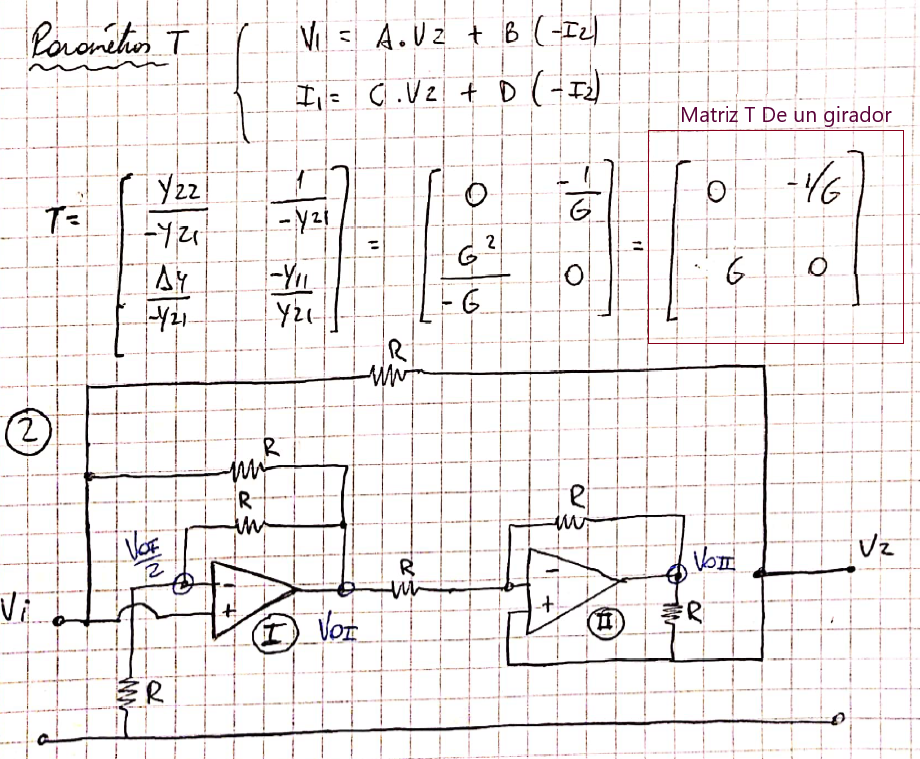 Parámetros T
V1 = A.V2 + B (-I2)
I1 = C.V2 + D (-I2)
Matriz T De un girador
T= [ Y22/-Y21 1/-Y21 ; ΔY/-Y21 -Y11/Y21 ] = [ 0 -1/G ; G²/-G 0 ] = [ 0 -1/G ; G 0 ]
R
2
R
R
R
VOI/2
V2
VOII
-
-
Vi
+
+
R
I
VOI
II
R
R